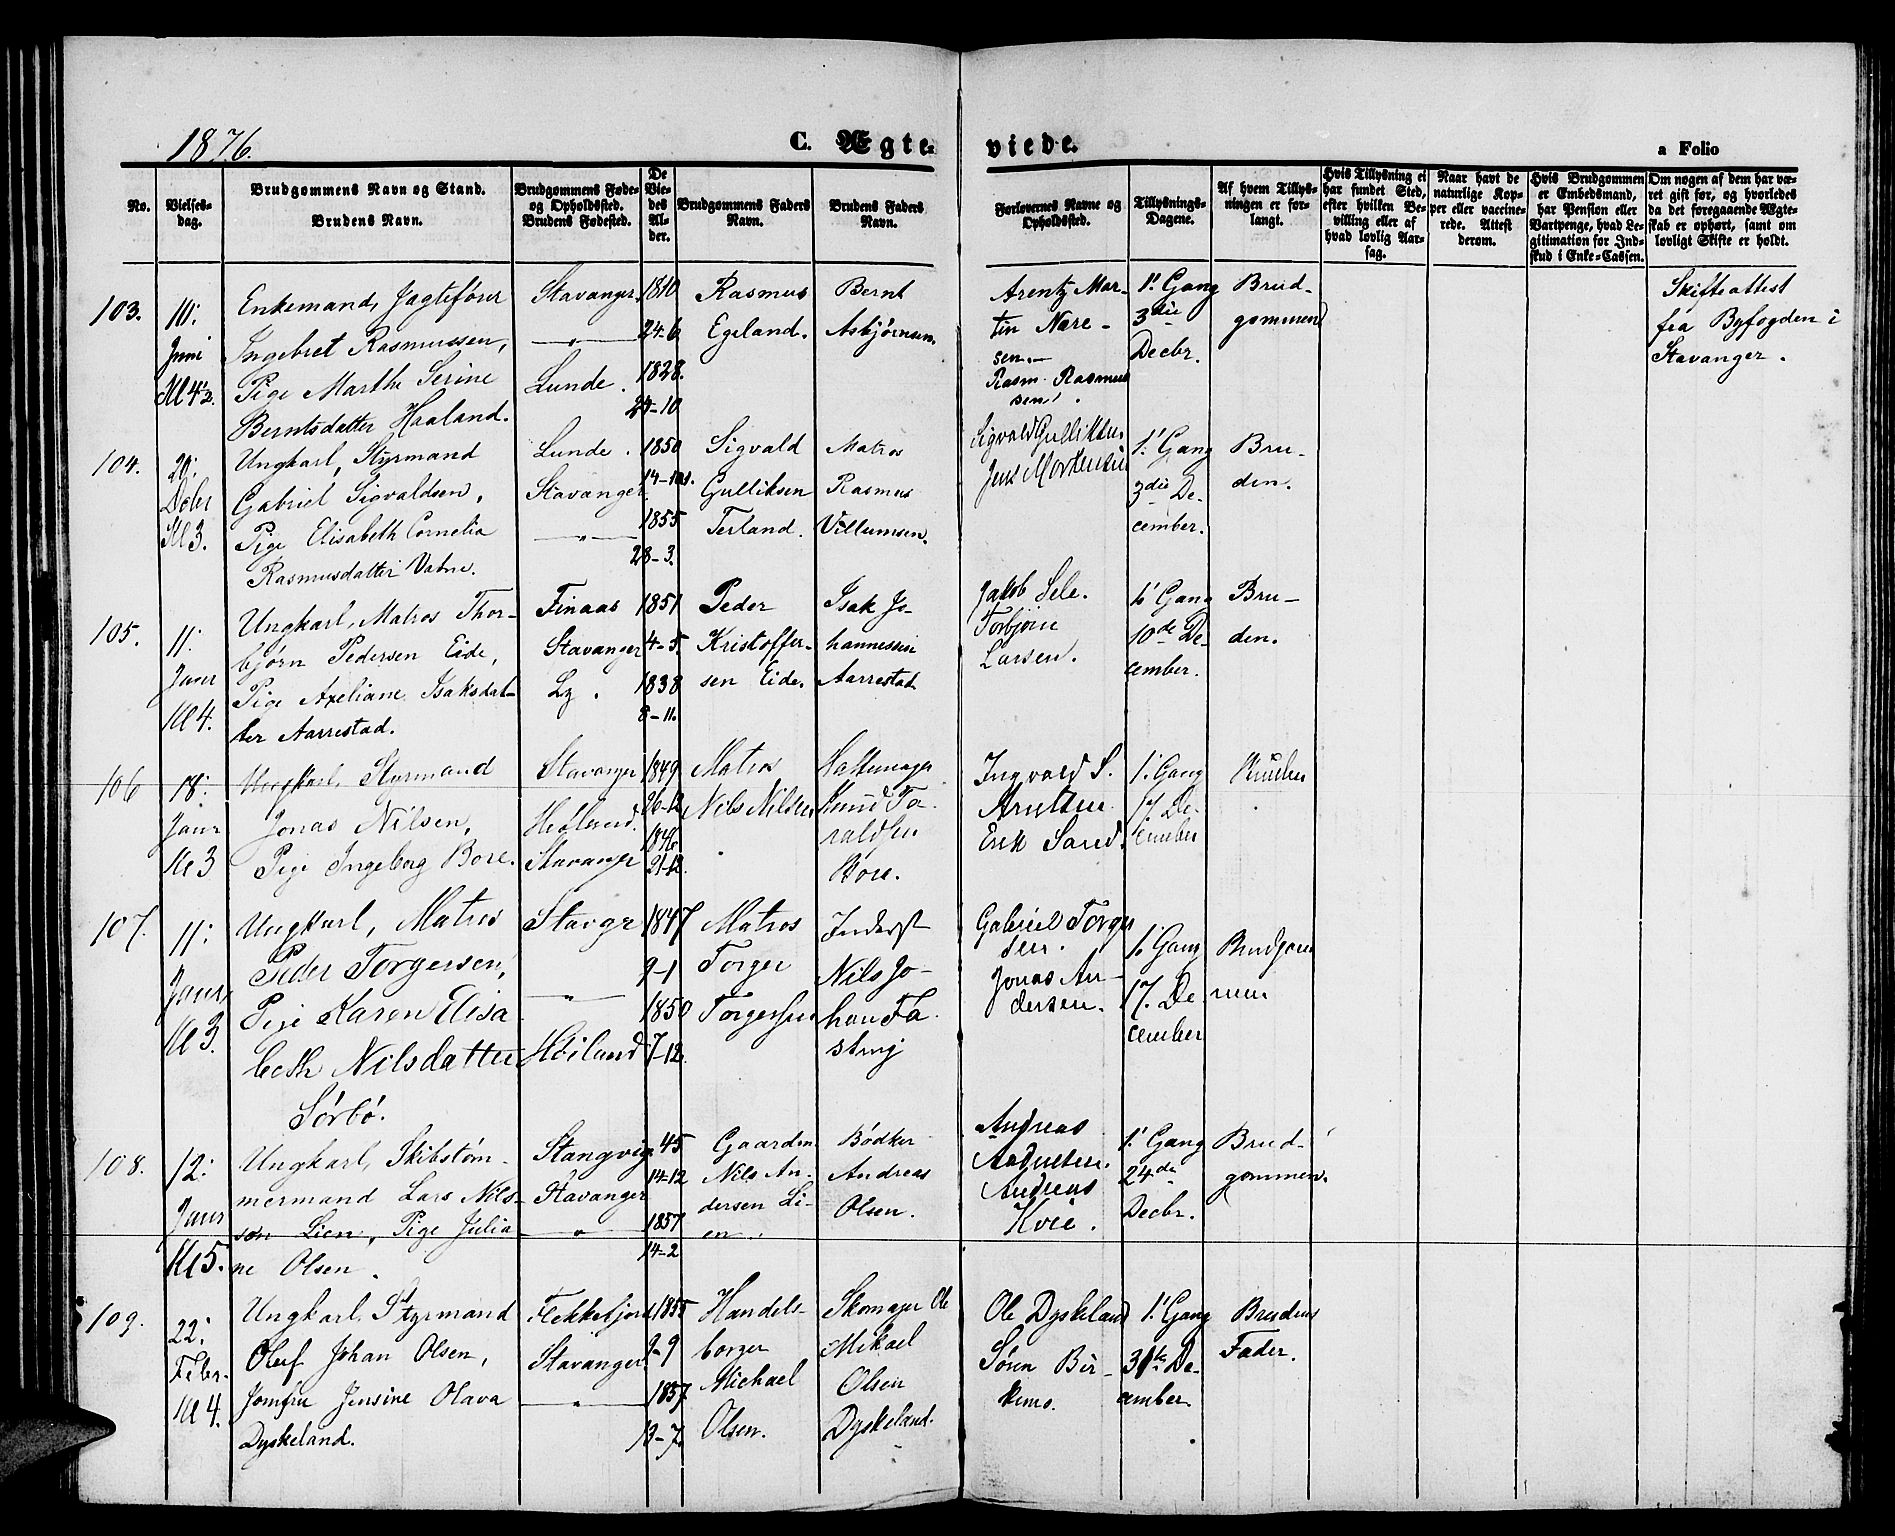 1876.
C. Ægte-
viede.
a Folio
No.
Vielses-
dag.
Brudgommens Navn og Stand.
Brudens Navn.
Brudgommens Føde-
og Opholdssted.
Brudens Fødested.
De
Vie-
des
Al-
der.
Brudgommens Faders
Navn.
Brudens Faders
Navn.
Forlovernes Navne og
Opholdssted.
Tillysnings-
Dagene.
Af hvem Tillys-
ningen er for-
langt.
Hvis Tillysning ei
har fundet Sted,
efter hvilken Be-
villing eller af
hvad lovlig Aar-
sag.
Naar havt de
naturlige Kop-
per eller vaccine-
rede. Attest
derom.
Hvis Brudgommen
er Embedsmand,
har Pension eller
Vartpenge, hvad Le-
gitimation for Ind-
skud i Enke-Cassen.
Om nogen af dem har væ-
ret gift før, og hvorledes
da det foregaaende Ægte-
skab er ophørt, samt om
lovligt Skifte er holdt.
103.
10:
Juni
Kl 4½.
Enkemand, Jagtefører
Ingebret Rasmussen,
Pige Marthe Serine
Berntsdatter Haaland.
Stavanger.
—"—
Lunde.
1810
24-6
1828.
24-10
Rasmus
Egeland.
Bernt
Asbjørnsen.
Arentz Mar-
tin Nære-
sen.-
Rasm. Rasmus
sen.
1! Gang
3die
Decbr.
Brud-
gommen
Skifteattest
fra Byfogden i
Stavanger.
104.
20:
Debr
Kl 3.
Ungkarl, Styrmand
Gabriel Sigvaldsen,
Pige Elisabeth Cornelia
Rasmusdatter Vatne.
Lunde.
Stavanger.
—"—
1850
14-10.
1855
28-3.
Sigvald
Gulliksen
Terland.
Matros
Rasmus
Villumsen.
Sigvald Gulliksen.
Jens Mortensen
1! Gang
3die De-
cember.
Bru-
den.
105.
11:
Janr
Kl 4.
Ungkarl, Matros Thor-
bjørn Pedersen Eide,
Pige Axeliane Isaksdat-
ter Aarrestad.
Finaas
Stavanger
Lz.
1851
4-5.
1838
8-11.
Peder
Kristoffer-
sen Eide.
Isak Jo-
hannessen
Aarrestad
Jakob Sele.
Torbjørn
Larsen.
1! Gang
10de De-
cember.
Bru-
den.
106
18:
Janr
Kl 3
Ungkarl, Styrmand
Jonas Nilsen,
Pige Ingeborg Bore.
Stavanger
Hetland.
Stavanger
1849
26-12
1846
21-12.
Matros
Nils Nilsen
Hattemager
Knud To-
raldsen
Bore.
Ingvald S.
Erik Sand.
1! Gang
17. De-
cember
Bruden
107.
11:
Janr
Kl 3.
Ungkarl, Matros
Peder Torgersen,
Pige Karen Elisa
beth Nilsdatter
Sörbö.
Stavgr
—"—
Høiland
1847
9-1
1850
7-12.
Matros
Torger
Torgersen
Inderst
Nils Jo-
han Fa-
sting
Gabriel Torger
sen.
Jonas An-
dersen.
1! Gang
17. De
cember
Brudgom
men
108.
12:
Janr
Kl 5.
Ungkarl, Skibstøm-
mermand Lars Nils-
son Lien, Pige Julia-
ne Olsen.
Stangvig
Stavanger
—"—
45
14-12
1857
14-2
Gaardm.
Nils An-
dersen Li-
en.
Bødker
Andreas
Olsen.
Andreas
Andreas
Kvie.
1! Gang
24de
Decbr.
Brud-
gommen.
109.
22:
Febr.
Kl 4.
Ungkarl, Styrmand
Oluf Johan Olsen,
Jomfru Jensine Olava
Dyskeland.
Flekkefjord.
Stavanger.
—"—
1855
9-9
1857.
13-7.
Handels-
borger
Michael
Olsen.
Skomager Ole
Mikael
Olsen
Dyskeland.
Ole Dyskeland
Søren Bir-
kemo.
1! Gang
31te De-
cember.
Brudens
Fader.